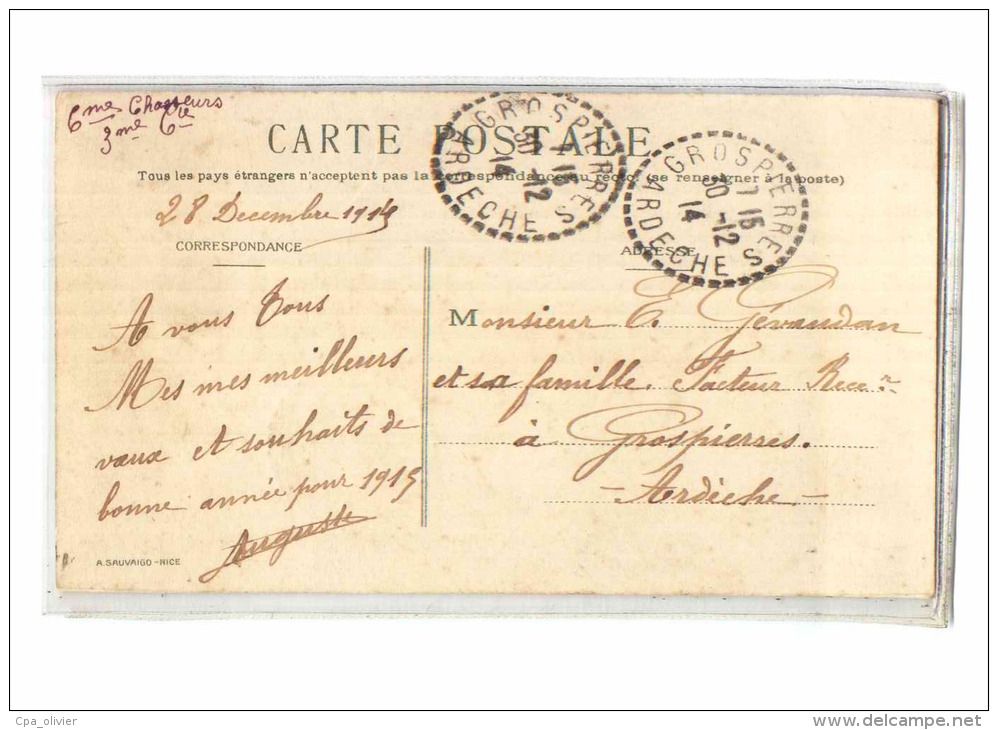 6me Chasseurs
3me Cie
CARTE POSTALE
Tous les pays étrangers n'acceptent pas la correspondance au recto. (se renseigner à la poste)
GROSPIERRES
7 15
30 -12
14
ARDECHE
GROSPIERRES
7 15
30 -12
14
ARDECHE
28 Decembre 1914
CORRESPONDANCE
A vous Tous
Mes mes meilleurs
vœux et souhaits de
bonne année pour 1915
Auguste
A. SAUVAIGO - NICE
ADRESSE
Monsieur E. Gévaudan
et sa famille. Facteur Recer
à Grospierres.
- Ardèche -
Cpa_olivier
www.delcampe.net